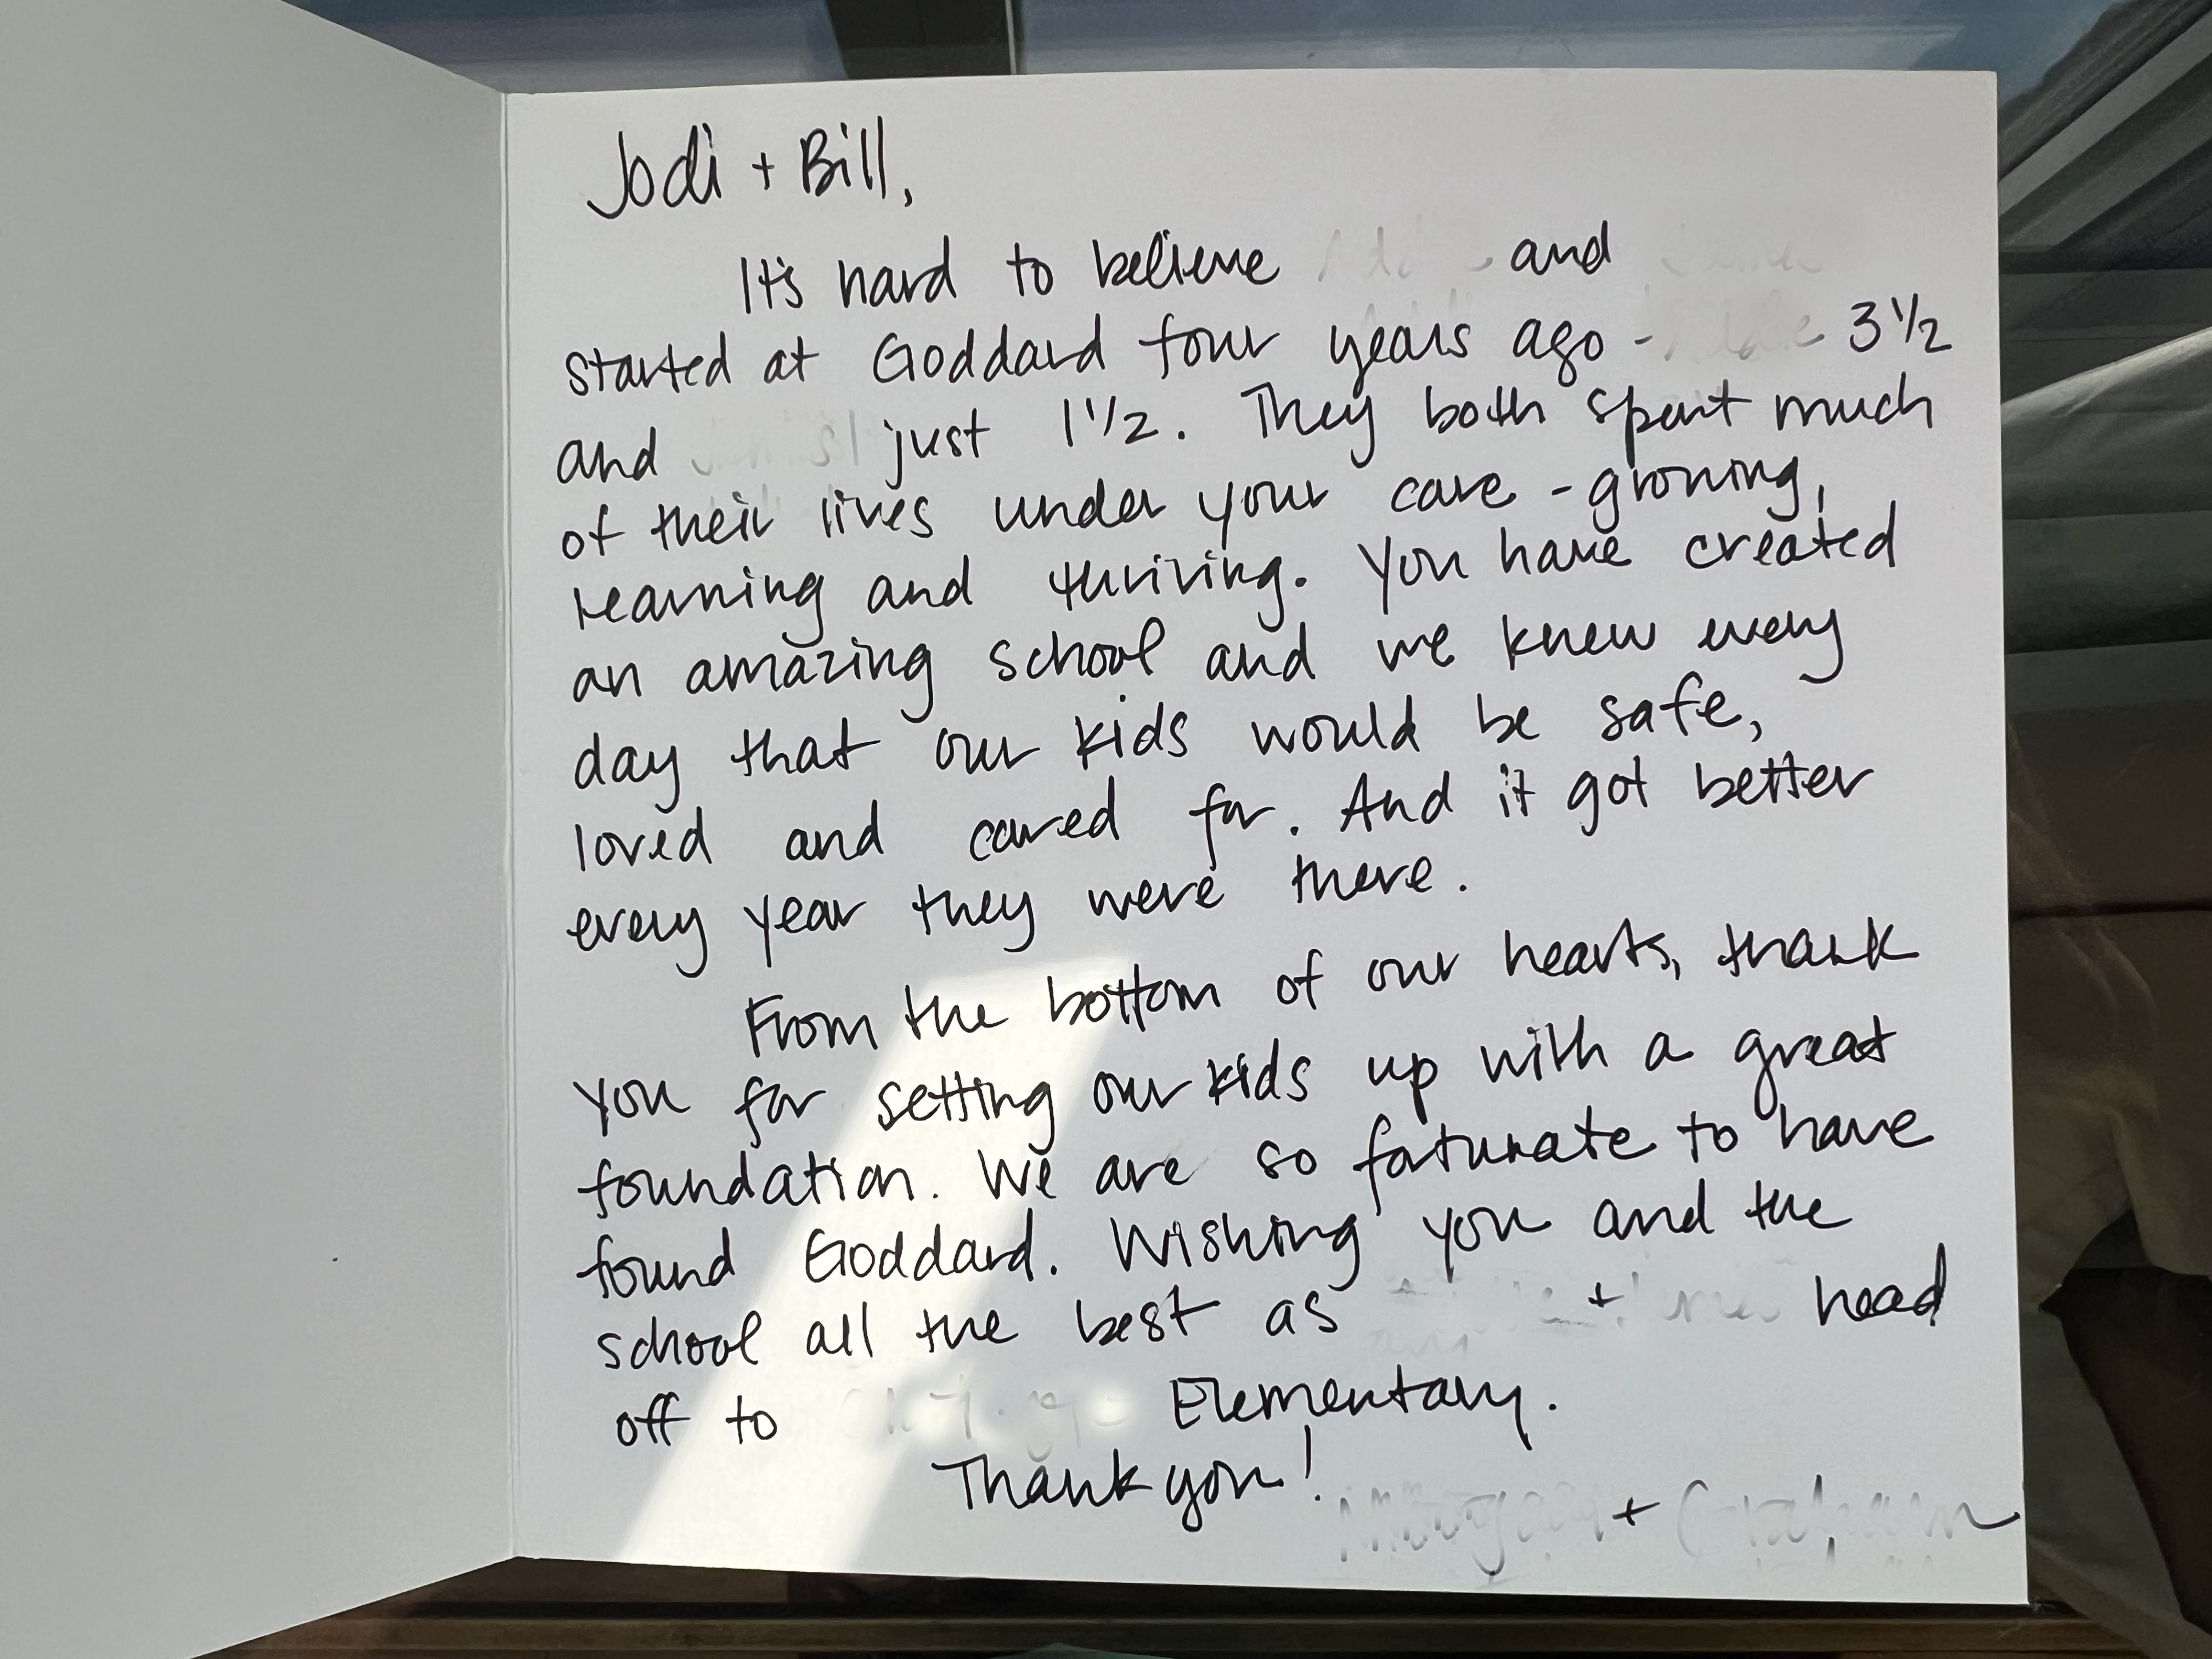 Jodi + Bill,
It's hard to believe and
started at Goddard four years ago - 3 1/2
and just 1 1/2. They both spent much
of their lives under your care - growing,
learning and thriving. You have created
an amazing school and we knew every
day that our kids would be safe,
loved and cared for. And it got better
every year they were there.
From the bottom of our hearts, thank
you for setting our kids up with a great
foundation. We are so fortunate to have
found Goddard. Wishing you and the
school all the best as + head
off to Elementary.
Thank you!
+